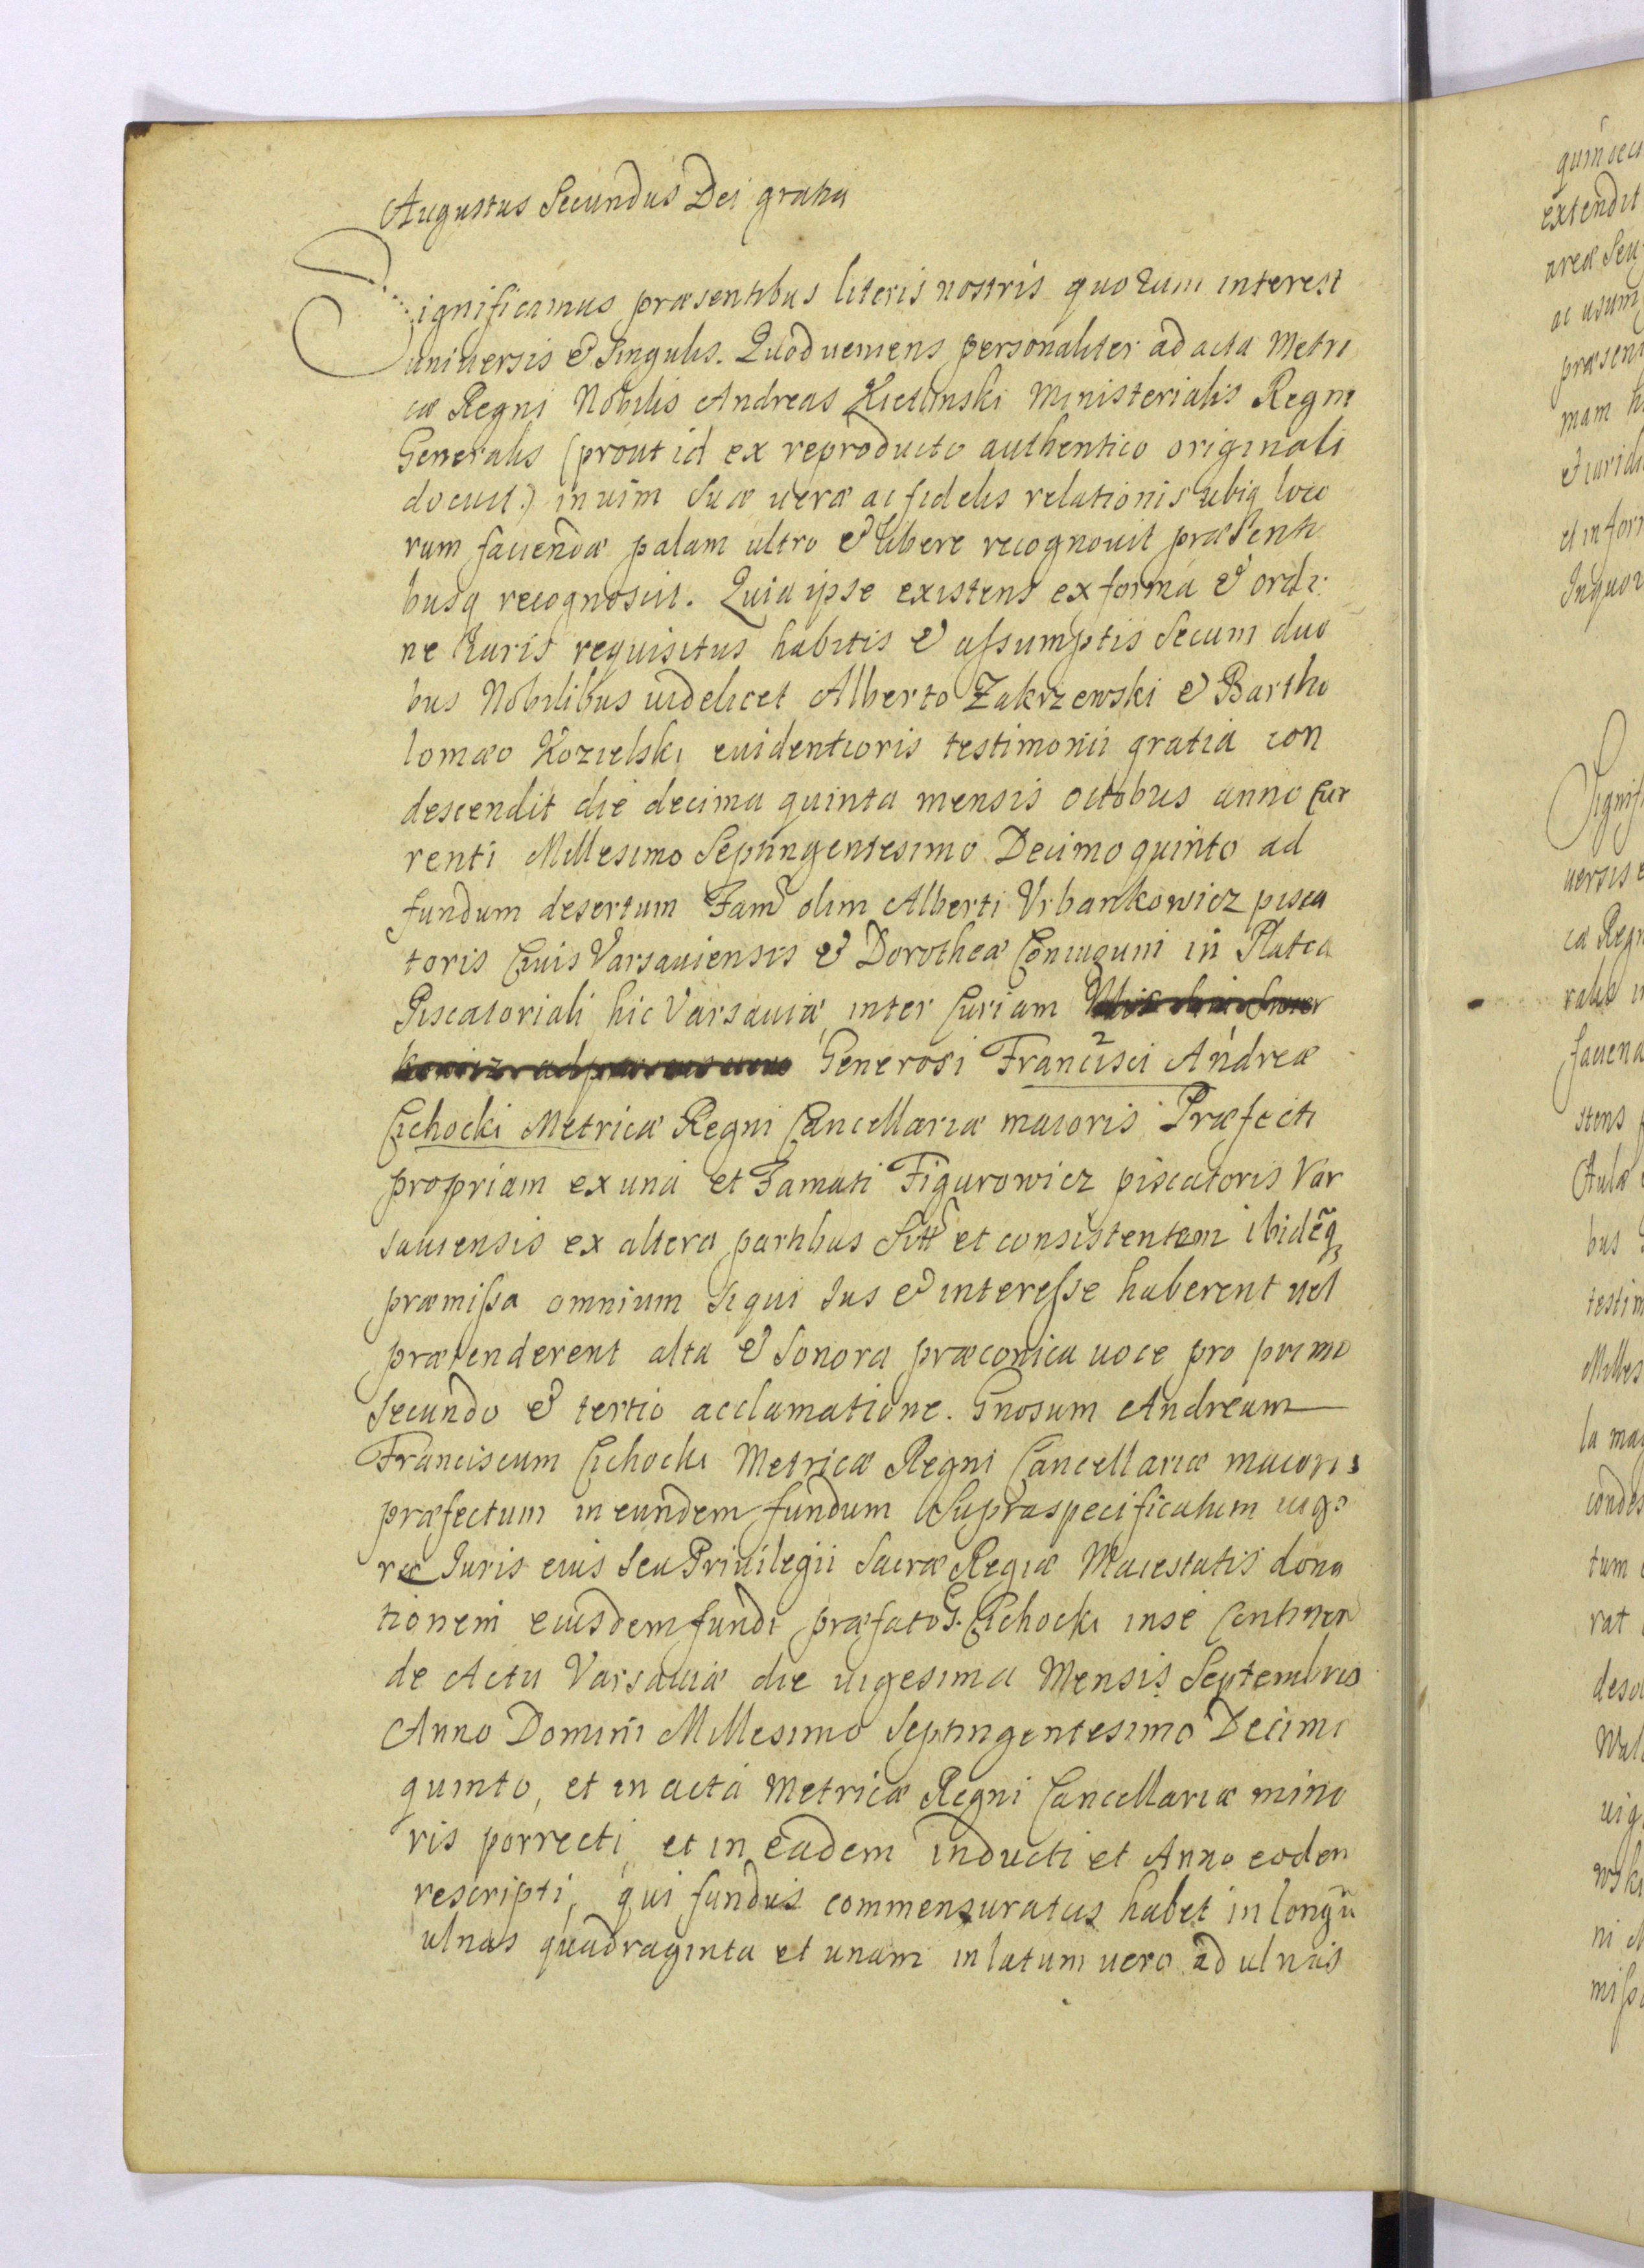 Augustus Secundus Dei gratia
Significamus præsentibus literis nostris quorum interest
universis & Singulis. Quod veniens personaliter ad acta Metri
cæ Regni Nobilis Andreas Kietlinski Ministerialis Regni
Generalis (prout id ex reproducto authentico originali
docuit.) in vim suæ veræ ac fidelis relationis ubiq loco
rum faciendæ palam ultro & libere recognovit præsenti
busq recognoscit. Quia ipse existens ex forma & ordi:
ne Iuris requisitus habitis & assumptis secum duo
bus Nobilibus videlicet Alberto Zakrzewski & Bartho
lomæo Kozielski evidentioris testimonii gratia con
descendit die decima quinta mensis octobris anno Cur
renti Millesimo Septingentesimo Decimo quinto ad
fundum desertum Fam olim Alberti Urbankowicz pisca
toris Civis Varsaviensis & Dorotheæ Coniugum in Platea
Piscatoriali hic Varsaviæ inter Curiam
Generosi Francisci 2 Andreæ 1
Cichocki Metricæ Regni Cancellariæ maioris Præfecti
propriam ex una et Famati Figurowicz piscatoris Var
saviensis ex altera partibus Sitt et consistentem ibidẽq
præmissa omnium siqui Ius & interesse haberent vel
prætenderent alta & sonora præconica voce pro primo
secundo & tertio acclamatione. Gnosum Andream
Franciscum Cichocki Metricæ Regni Cancellariæ maioris
præfectum in eundem fundum supraspecificatum vigo
re Iuris eius seu Privilegii Sacræ Regiæ Maiestatis dona
tionem eiusdem fundi præfato G. Cichocki in se Continen
de Actu Varsaviæ die vigesima Mensis Septembris
Anno Domini Millesimo Septingentesimo Decimo
quinto, et in acta Metricæ Regni Cancellariæ mino
ris porrecti, et in eadem inducti et Anno eodem
rescripti, qui fundus commensuratus habet in longũ
ulnas quadraginta et unam in latum vero ad ulnas